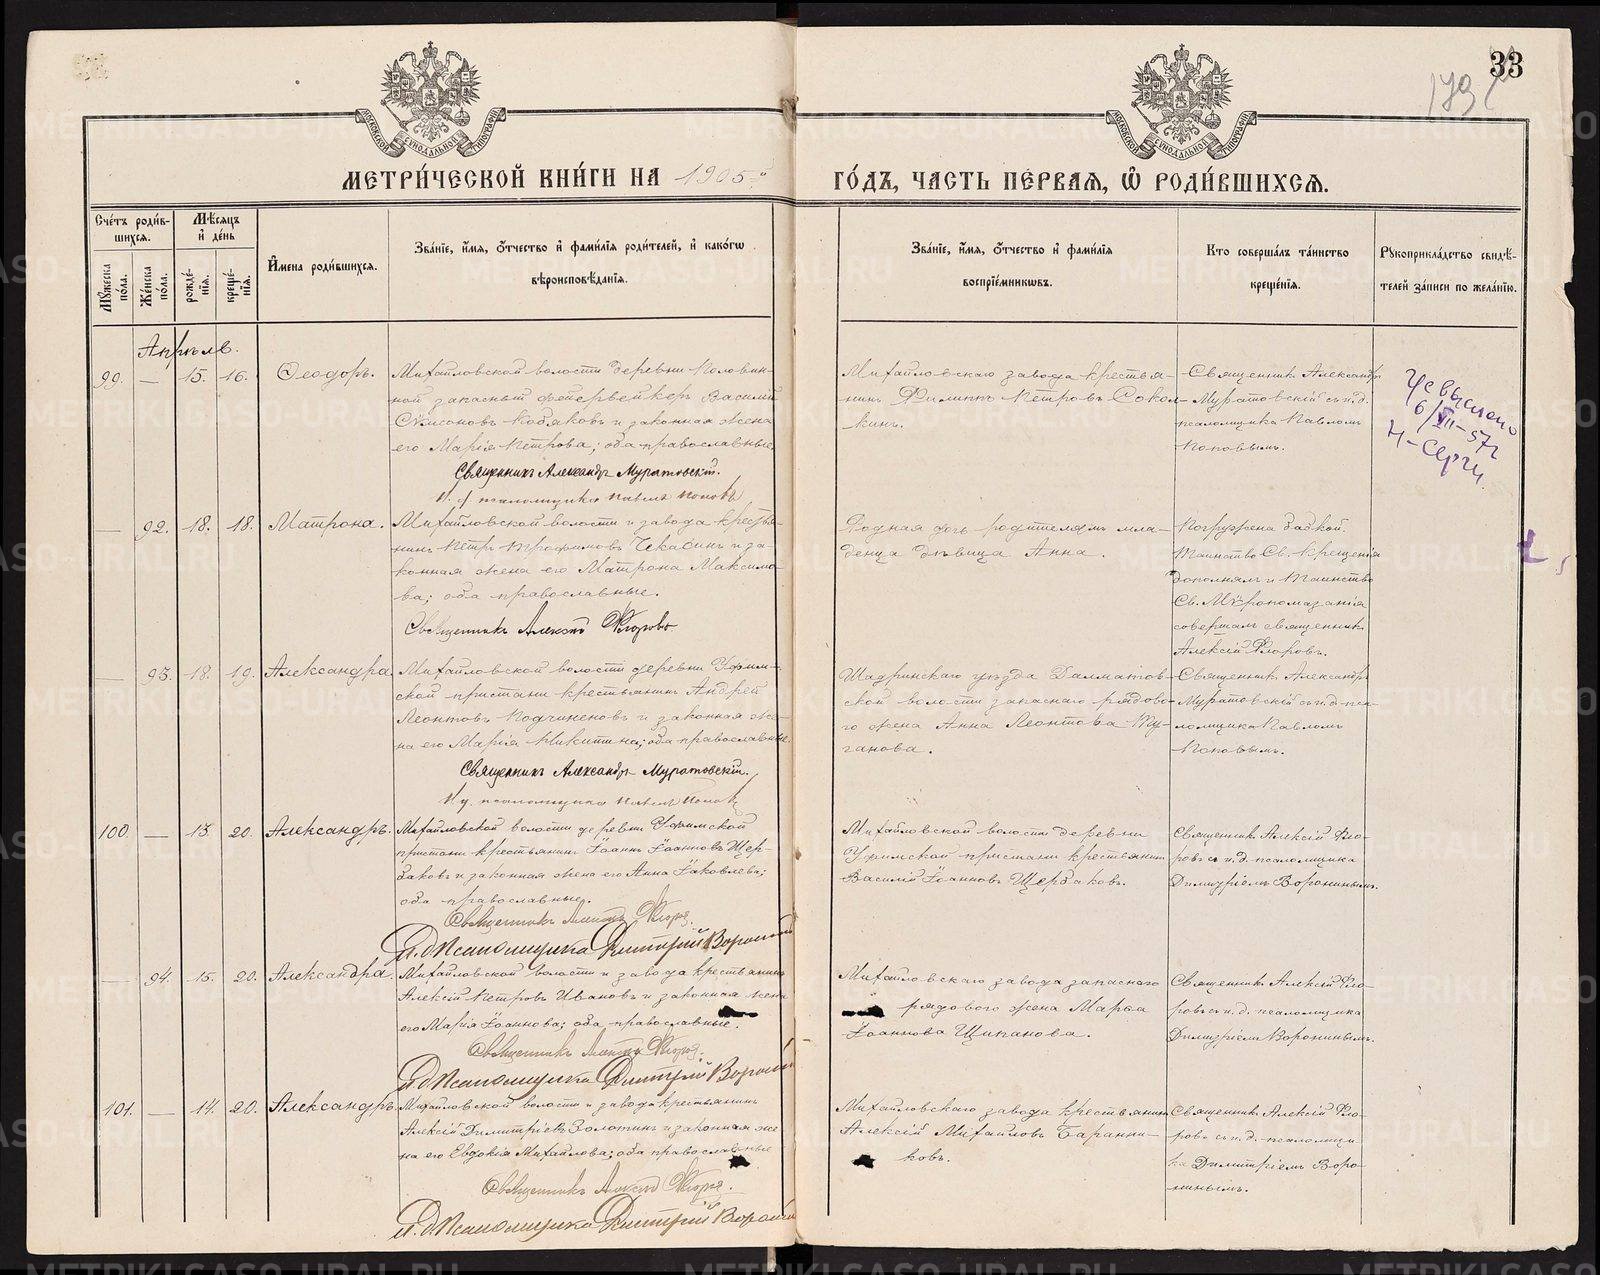 33
179
МОСКОВСКОЙ СѴНОДАЛЬНОЙ ТИПОГРАФІИ
МОСКОВСКОЙ СѴНОДАЛЬНОЙ ТИПОГРАФІИ
МЕТРИ́ЧЕСКОЙ КНИ́ГИ НА 1905й
ГО́ДЪ, ЧАСТЬ ПЕ́РВАѦ, Ѽ РОДИ́ВШИХСѦ.
Сче́тъ роди́в-
шихсѧ.
Мꙋ́жеска по́ла.
Же́нска по́ла.
Мѣ́сѧцъ
и҆ де́нь
рожде́-
нїѧ.
креще́-
нїѧ.
И҆мена роди́вшихсѧ.
Зва́нїе, и҆́мѧ, ѻ҆́тчество и҆ фами́лїѧ роди́телей, и҆ како́гѡ
вѣроисповѣ́данїѧ.
Зва́нїе, и҆́мѧ, ѻ҆́тчество и҆ фами́лїѧ
воспрїе́мниковъ.
Кто соверша́лъ та́инство
креще́нїѧ.
Рꙋкоприкла́дство свидѣ́-
телей за́писи по жела́нїю.
Апрѣль.
99. — 15. 16. Ѳеодоръ.
Михайловской волости деревни Половин-
ной запасный фейерверкеръ Василій
Сѵмеоновъ Кобяковъ и законная жена
его Марія Петрова; оба православные.
Священникъ Александръ Муратовскій.
И. д. псаломщика Павелъ Поповъ
Михайловскаго завода крестья-
нинъ Филиппъ Петровъ Сокол-
кинъ.
Священникъ Александръ
Муратовскій съ и. д.
псаломщика Павломъ
Поповымъ.
6/VII-57г
Н-Серги
— 92. 18. 18. Матрона.
Михайловской волости и завода крестья-
нинъ Петръ Трофимовъ Чекасинъ и за-
конная жена его Матрона Максимо-
ва; оба православные.
Священникъ Алексій Флоровъ
Родная дочь родителямъ мла-
денца дѣвица Анна.
Погружена бабкой.
Таинство Св. Крещенія
дополнялъ и Таинство
Св. Мѵропомазанія
совершалъ священникъ
Алексій Флоровъ.
— 93. 18. 19. Александра
Михайловской волости деревни Уфим-
ской пристани крестьянинъ Андрей
Леонтовъ Подчиненовъ и законная же-
на его Марія Никитина; оба православные.
Священникъ Александръ Муратовскій.
И. д. псаломщика Павелъ Поповъ
Шадринскаго уѣзда Далматов-
ской волости запаснаго рядово-
го жена Анна Леонтова Ту-
ганова.
Священникъ Александръ
Муратовскій съ и. д. пса-
ломщика Павломъ
Поповымъ.
100. — 13. 20. Александръ.
Михайловской волости деревни Уфимской
пристани крестьянинъ Іоаннъ Іоанновъ Щер-
баковъ и законная жена его Анна Іаковлева;
оба православные.
Священникъ Алексій Флоровъ
И. д. Псаломщика Димитрій Воронинъ
Михайловской волости деревни
Уфимской пристани крестьянинъ
Василій Іоанновъ Щербаковъ.
Священникъ Алексій Фло-
ровъ съ и. д. псаломщика
Димитріемъ Воронинымъ.
— 94. 15. 20. Александра.
Михайловской волости и завода крестьянинъ
Алексій Петровъ Ивановъ и законная жена
его Марія Іоаннова; оба православные.
Священникъ Алексій Флоровъ.
И. д. Псаломщика Димитрій Воронинъ
Михайловскаго завода запаснаго
рядового жена Марѳа
Іоаннова Щипанова.
Священникъ Алексій Фло-
ровъ съ и. д. псаломщика
Димитріемъ Воронинымъ.
101. — 14. 20. Александръ
Михайловской волости и завода крестьянинъ
Алексій Димитріевъ Золотинъ и законная же-
на его Евдокія Михайлова; оба православные
Священникъ Алексій Флоровъ.
И. д. Псаломщика Димитрій Воронинъ
Михайловскаго завода крестьянинъ
Алексій Михайловъ Баранни-
ковъ.
Священникъ Алексій Фло-
ровъ съ и. д. псаломщи
ка Димитріемъ Воро-
нинымъ.
METRIKI.GASO-URAL.RU